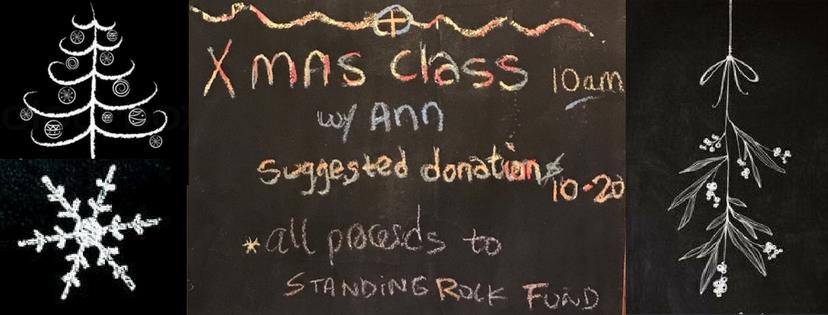 Xmas class 10am
w/ Ann
Suggested donation $10-20
*all proceeds to
STANDING ROCK FUND